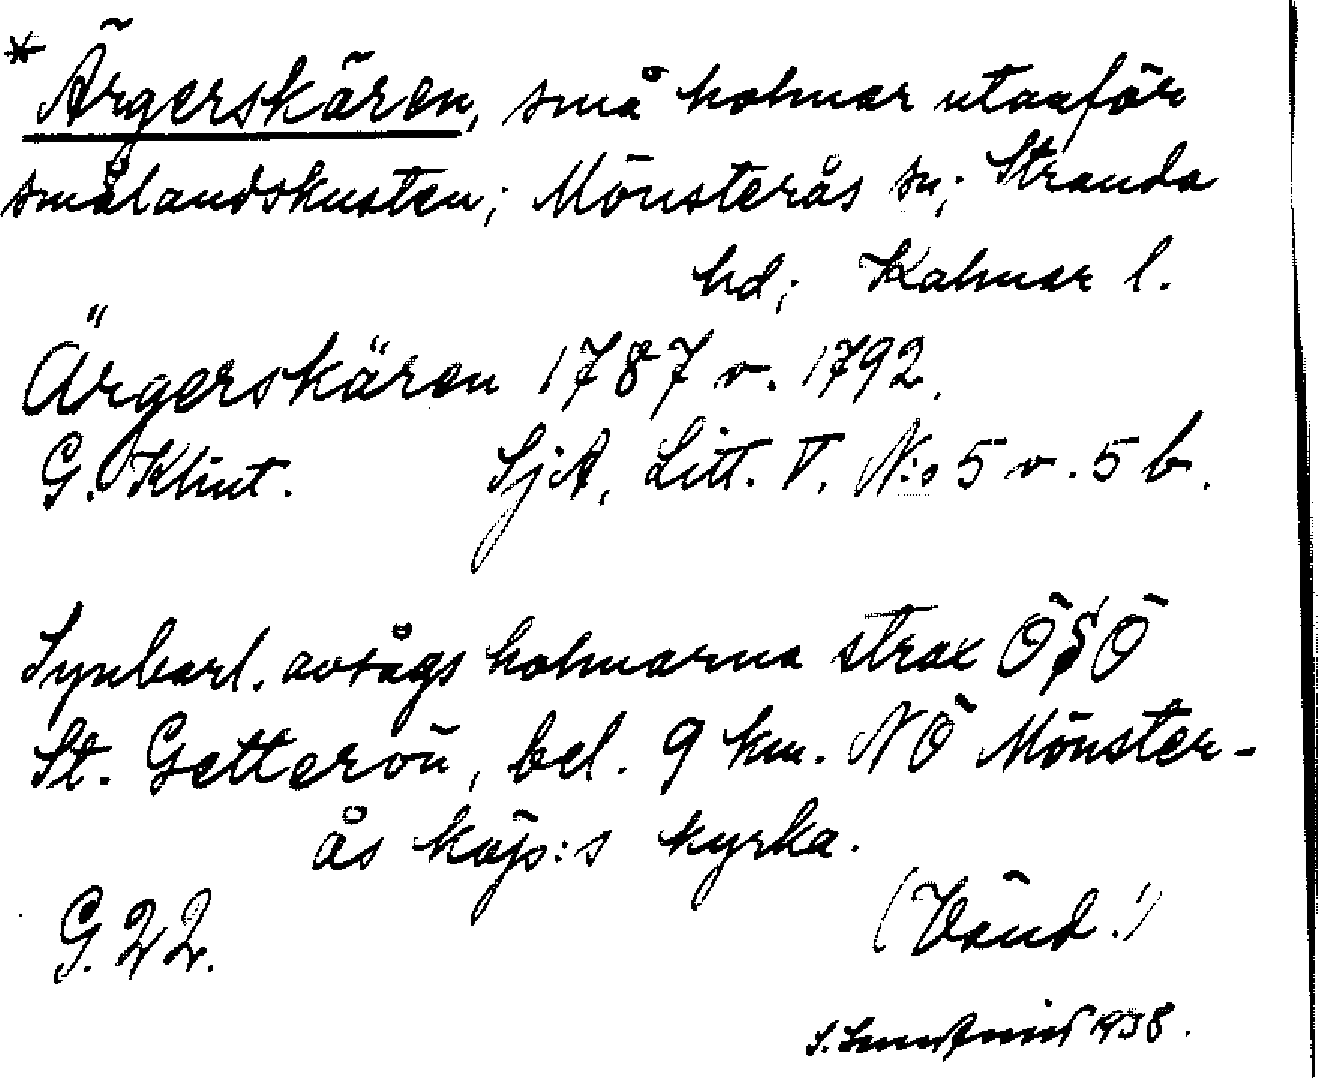 * Ärgerskären, små holmar utanför
smålandskusten; Mönsterås sn; Stranda
hd; Kalmar l.
Ärgerskären 1787 o. 1792.
G. Klint. SjA, Litt. V. N:o 5 o. 5 b.
Synbarl. avsågs holmarna strax ÖSÖ
St. Getterön, bel. 9 km. NÖ Mönster-
ås köp:s kyrka.
G. 22. (Vänd!)
1938.